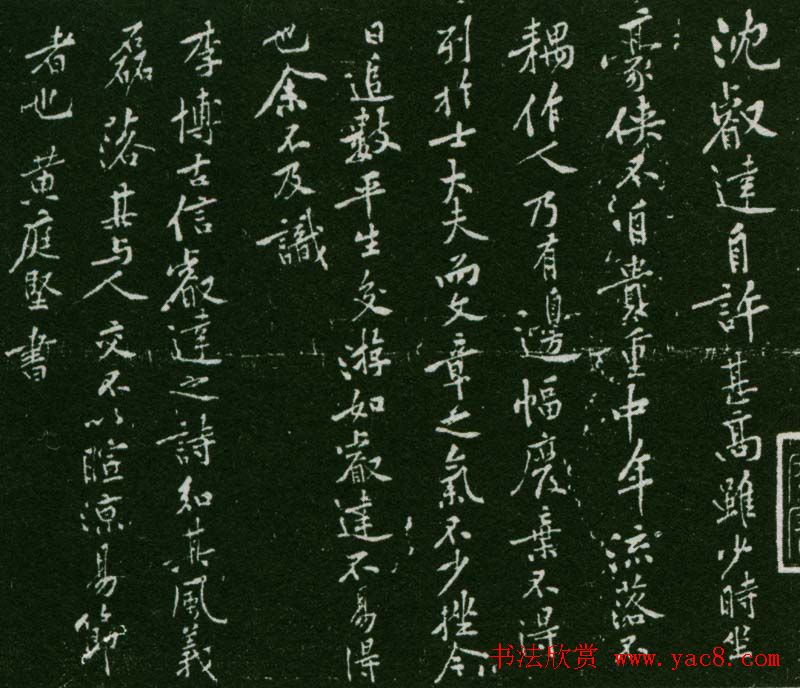 沈叡達自許甚高雖少時坐
豪俠不自貴重中年流落不
耦作人乃有邊幅廢棄不得
列於士大夫而文章之氣不少挫今
日追數平生交游如叡達不易得
也余不及識
李博古信叡達之詩知其風義
磊落其与人交不以暄涼易節
者也黄庭堅書
书法欣赏 www.yac8.com